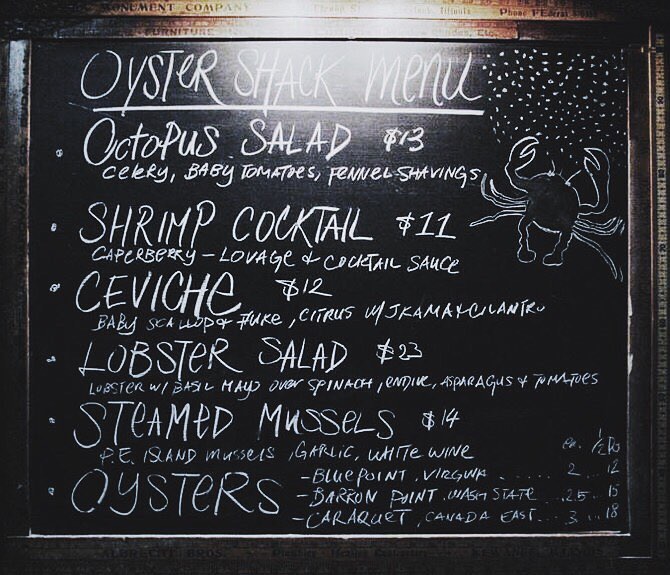 MONUMENT COMPANY
FURNITURE
OYSTER SHACK MENU
OCTOPUS SALAD $13
CELERY, BABY TOMATOES, FENNEL SHAVINGS
SHRIMP COCKTAIL $11
CAPERBERRY - LOVAGE & COCKTAIL SAUCE
CEVICHE $12
BABY SCALLOP & FLUKE, CITRUS W/ JKAMA & CILANTRO
LOBSTER SALAD $23
LOBSTER W/ BASIL MAYO OVER SPINACH, ENDIVE, ASPARAGUS & TOMATOES
STEAMED MUSSELS $14
P.E. ISLAND MUSSELS, GARLIC, WHITE WINE
ea. 1/2 Do
OYSTERS - BLUEPOINT, VIRGINIA ........ 2 .. 12
- BARRON POINT, WASH STATE ... 2.5 .. 15
- CARAQUET, CANADA EAST ... 3 ... 18
ALBRECHT BROS.